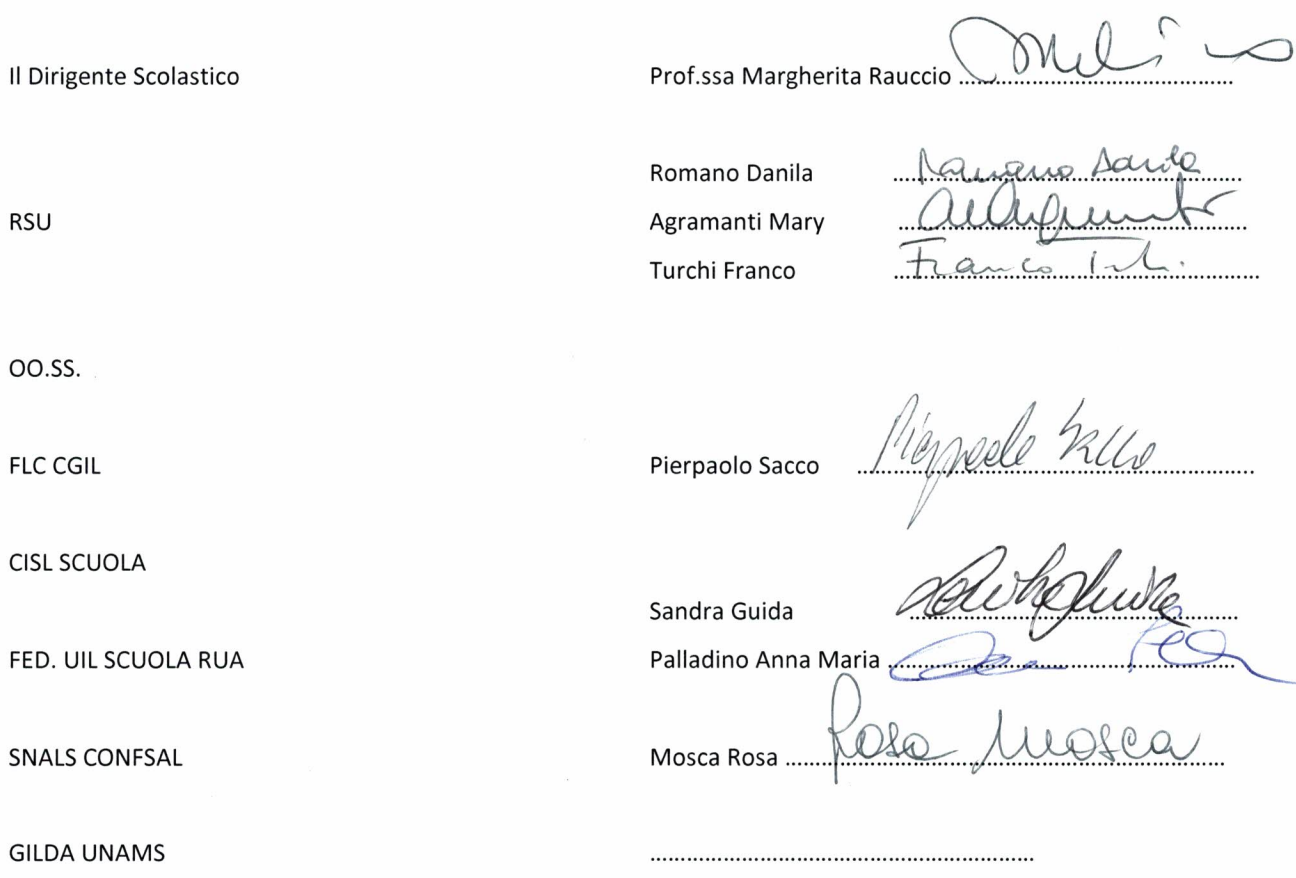 Il Dirigente Scolastico Prof.ssa Margherita Rauccio ..........
Romano Danila .......... Romano Danila
RSU Agramanti Mary ..........
Turchi Franco .......... Franco
OO.SS.
FLC CGIL Pierpaolo Sacco .......... Pierpaolo Sacco
CISL SCUOLA
Sandra Guida ..........
FED. UIL SCUOLA RUA Palladino Anna Maria ..........
SNALS CONFSAL Mosca Rosa .......... Rosa Mosca
GILDA UNAMS ..........